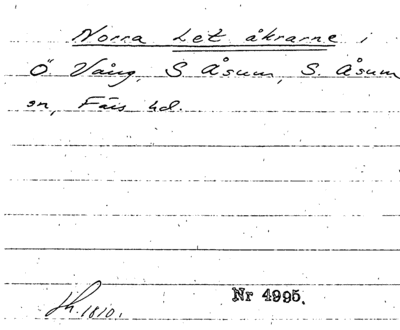 Norra Let åkrarne i
Ö Vång, S Åsum, S. Åsum
sn, Färs hd.
Sk. 1810.
Nr 4995.